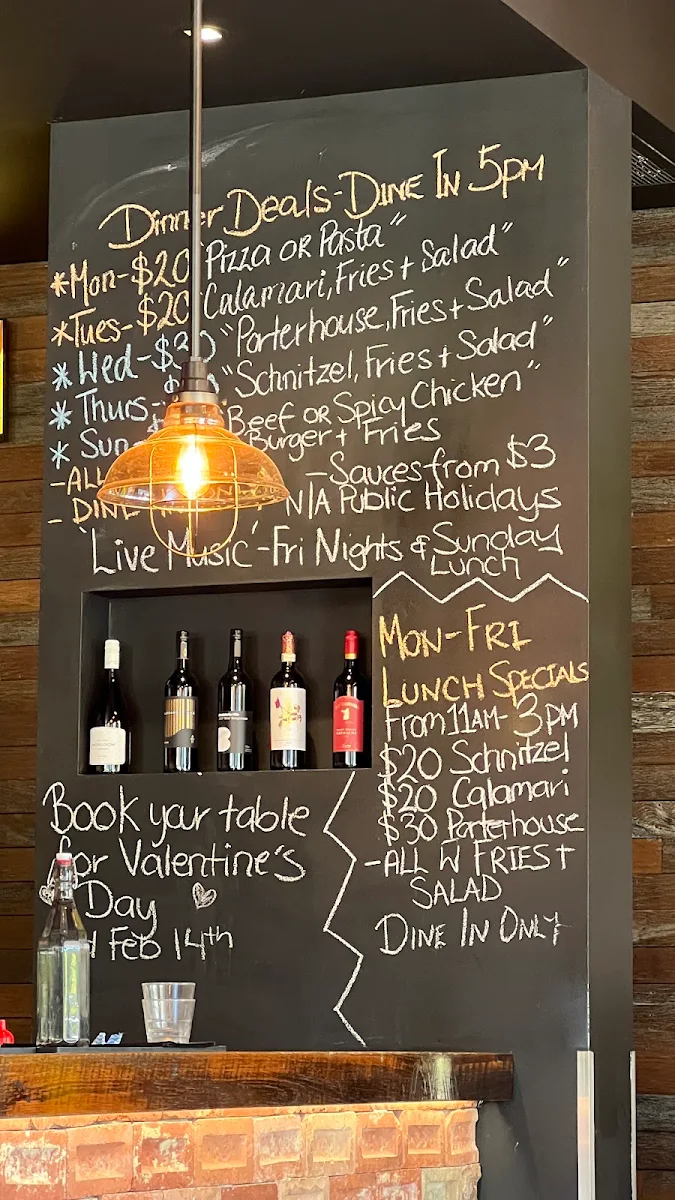 Dinner Deals - Dine In 5pm
*Mon - $20 "Pizza or Pasta"
*Tues - $20 "Calamari, Fries + Salad"
* Wed - $30 "Porterhouse, Fries + Salad"
* Thurs - "Schnitzel, Fries + Salad"
* Sun Beef or Spicy Chicken"
Burger + Fries
- ALL - Sauces from $3
- DINE N/A Public Holidays
'Live Music' - Fri Nights & Sunday
Lunch
Mon - Fri
Lunch Specials
From 11am - 3pm
$20 Schnitzel
$20 Calamari
$30 Porterhouse
- ALL W FRIES +
SALAD
Dine In Only
Book your table
for Valentine's
Day
Feb 14th
B